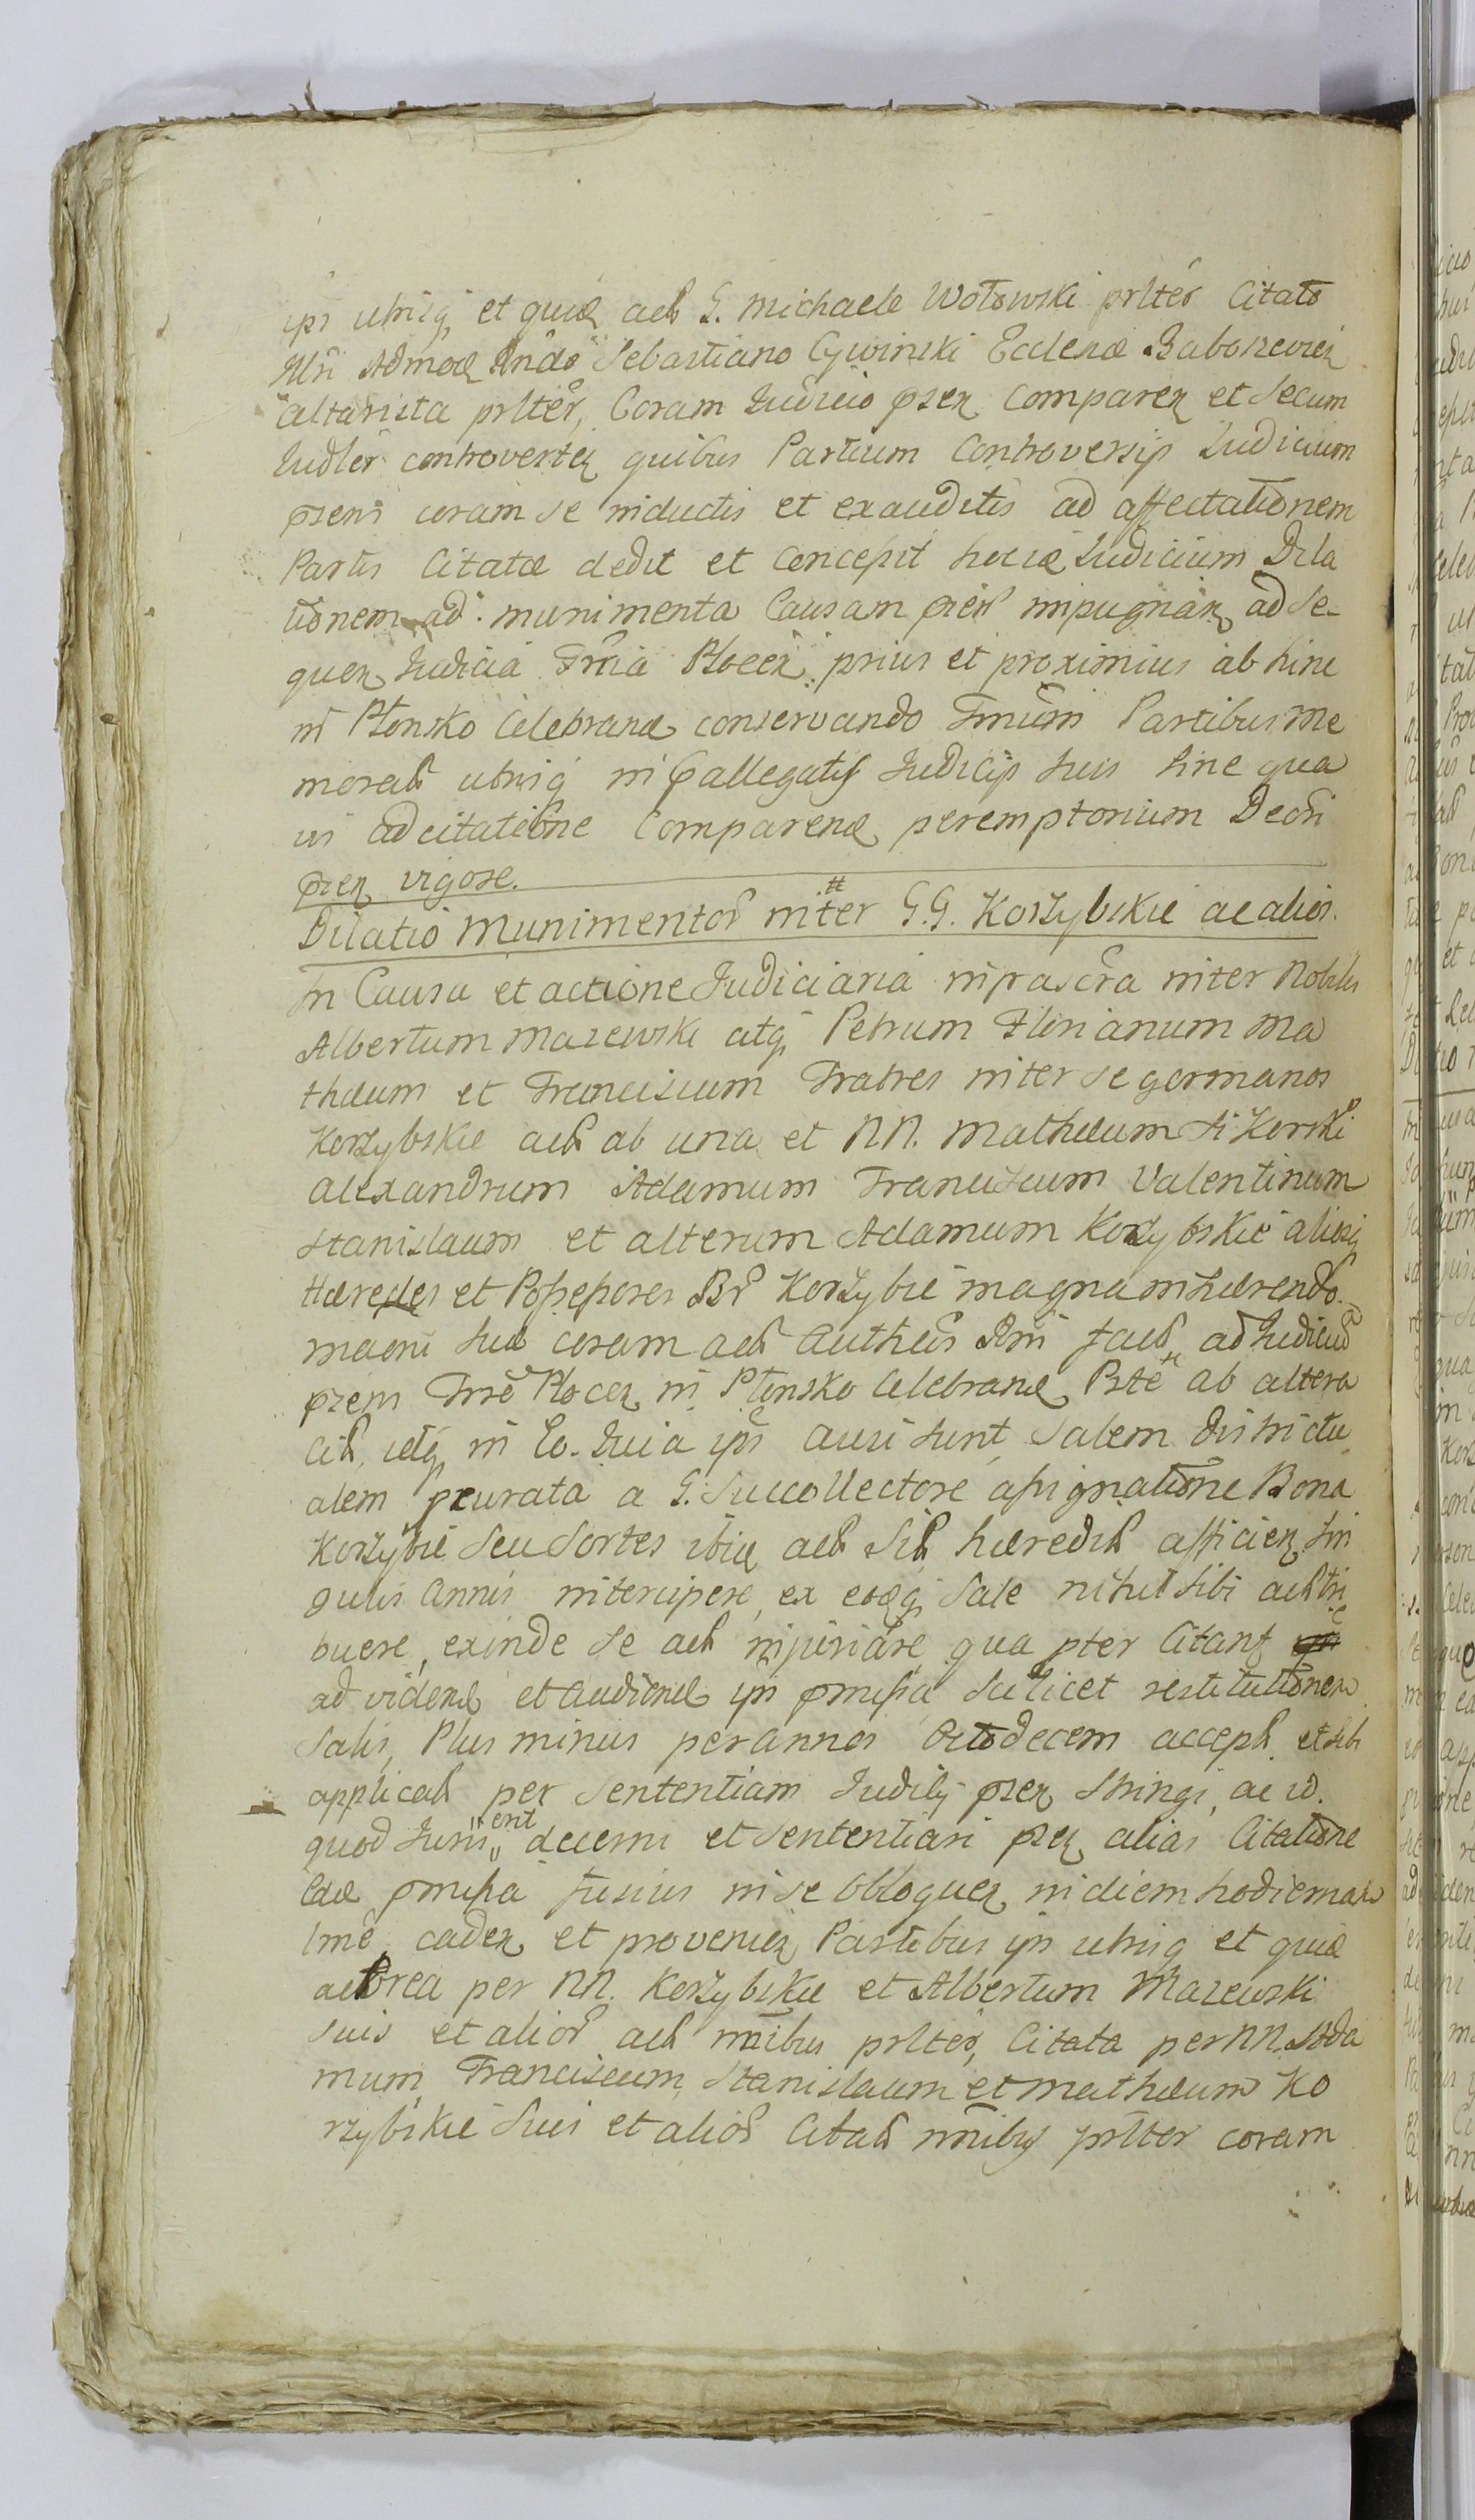 ips utrisq et quidē ach G. Michaele Wołowski prlter Citato
Altri Admodū Rndo Sebastiano Cywinski Ecclesiæ Baboszewień
altarista prlter, Coram Judicio pseñ Compareñ et Secum
Judler controverteñ quibus Partium Controversijs Judicium
psens coram se inductis et exauditis ad affectationem
Partis Citatæ dedit et concepit hocce Judicium Dila
tionem ad munimenta Causam psen impugnañ ad se-
queñ Judicia Trria Płoceñ prius et proximius ab hinc
in Płonsko Celebrand conservando Trmum Partibus me
morat utrisq in pallegatis Judicijs suis sine qua
vis adcitatione Comparend peremptorium Decri
pseñ vigore.
Dilatio Munimentor inter G.G. Korzybskie ac alios.
In Causa et actione Judiciaria infrascra inter Nobiles
Albertum Mazewski atq Petrum Florianum Ma
thæum et Franciscum Fratres inter se germanos
Korzybskie ach ab una et NN. Mathæum Sikorski
Alexandrum Adamum Franciscum Valentinum
Stanislaum et alterum Adamum Korzybskie aliosq
Hæredes et Possessores Br Korzybie magna inhærendo
maoni suæ coram ach Authen Rni fact, ad Judicium
psens Trre Płoceñ in Płonsko Celebrand Parte ab altera
Cit, idq in Eo. Quia ipsi ausi sunt Salem districtu
alem pcurata a G. Succollectore assignatione Bona
Korzybie seu Sortes ibid ach Cit hæredit afficieñ sin
gulis annis intercipere, ex eoq Sale nihil sibi ach tri
buere, exinde se ach injuriare qua pter Citant
ad vidend et audiend ipsi pmissa scilicet restitutionem
Salis, Plus minus per annos Octodecem accept et sibi
applicat per Sententiam Judilj pseñ Stringi, ac id.
quod Juris erit decerni et sententiari pseñ alias Citatione
Eade pmissa fusius in se Obloqueñ in diem hodiernam
lme cadeñ et provenieñ Partibus ips utrisq et quidē
actorea per NN. Korzybskie et Albertum Mazewski
suis et alior ach nnibus prlter, Citata per NN. Ada
mum, Franciscum, Stanislaum et Mathæum Ko
rzybskie suis et alior Citat nnibus prlter coram